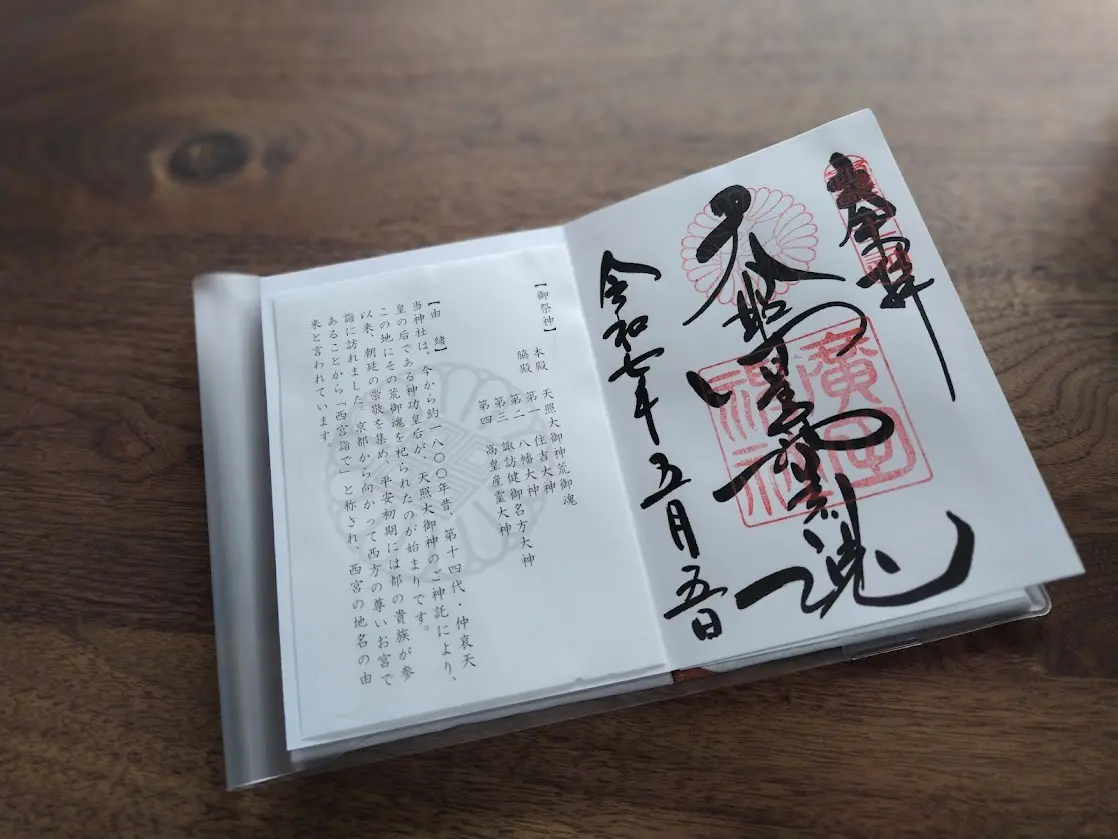 廣田
神社
令和七年五月五日
【御祭神】 本殿 天照大御神荒御魂
脇殿 第一 住吉大神
第二 八幡大神
第三 諏訪健御名方大神
第四 高皇産霊大神
【由 緒】
当神社は、今から約一八〇〇年昔、第十四代・仲哀天
皇の后である神功皇后が、天照大御神のご神託により、
この地にその荒御魂を祀られたのが始まりです。
以来、朝廷の崇敬を集め、平安初期には都の貴族が参
詣に訪れました。京都から向かって西方の尊いお宮で
あることから「西宮詣で」と称され、西宮の地名の由
来と言われています。